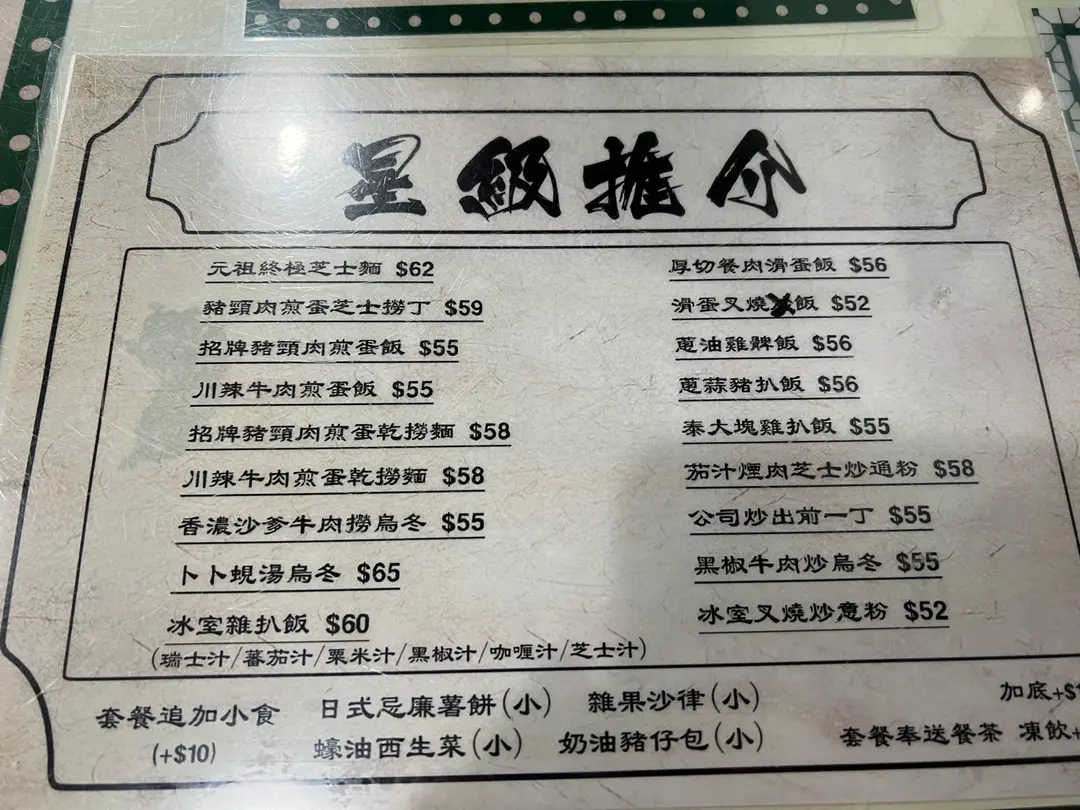 星級推介
元祖終極芝士麵 $62
豬頸肉煎蛋芝士撈丁 $59
招牌豬頸肉煎蛋飯 $55
川辣牛肉煎蛋飯 $55
招牌豬頸肉煎蛋乾撈麵 $58
川辣牛肉煎蛋乾撈麵 $58
香濃沙爹牛肉撈烏冬 $55
卜卜蜆湯烏冬 $65
冰室雜扒飯 $60
(瑞士汁/蕃茄汁/粟米汁/黑椒汁/咖喱汁/芝士汁)
厚切餐肉滑蛋飯 $56
滑蛋叉燒飯 $52
蔥油雞髀飯 $56
蔥蒜豬扒飯 $56
泰大塊雞扒飯 $55
茄汁煙肉芝士炒通粉 $58
公司炒出前一丁 $55
黑椒牛肉炒烏冬 $55
冰室叉燒炒意粉 $52
套餐追加小食
(+$10)
日式忌廉薯餅(小) 雜果沙律(小)
蠔油西生菜(小) 奶油豬仔包(小)
加底+$
套餐奉送餐茶 凍飲+